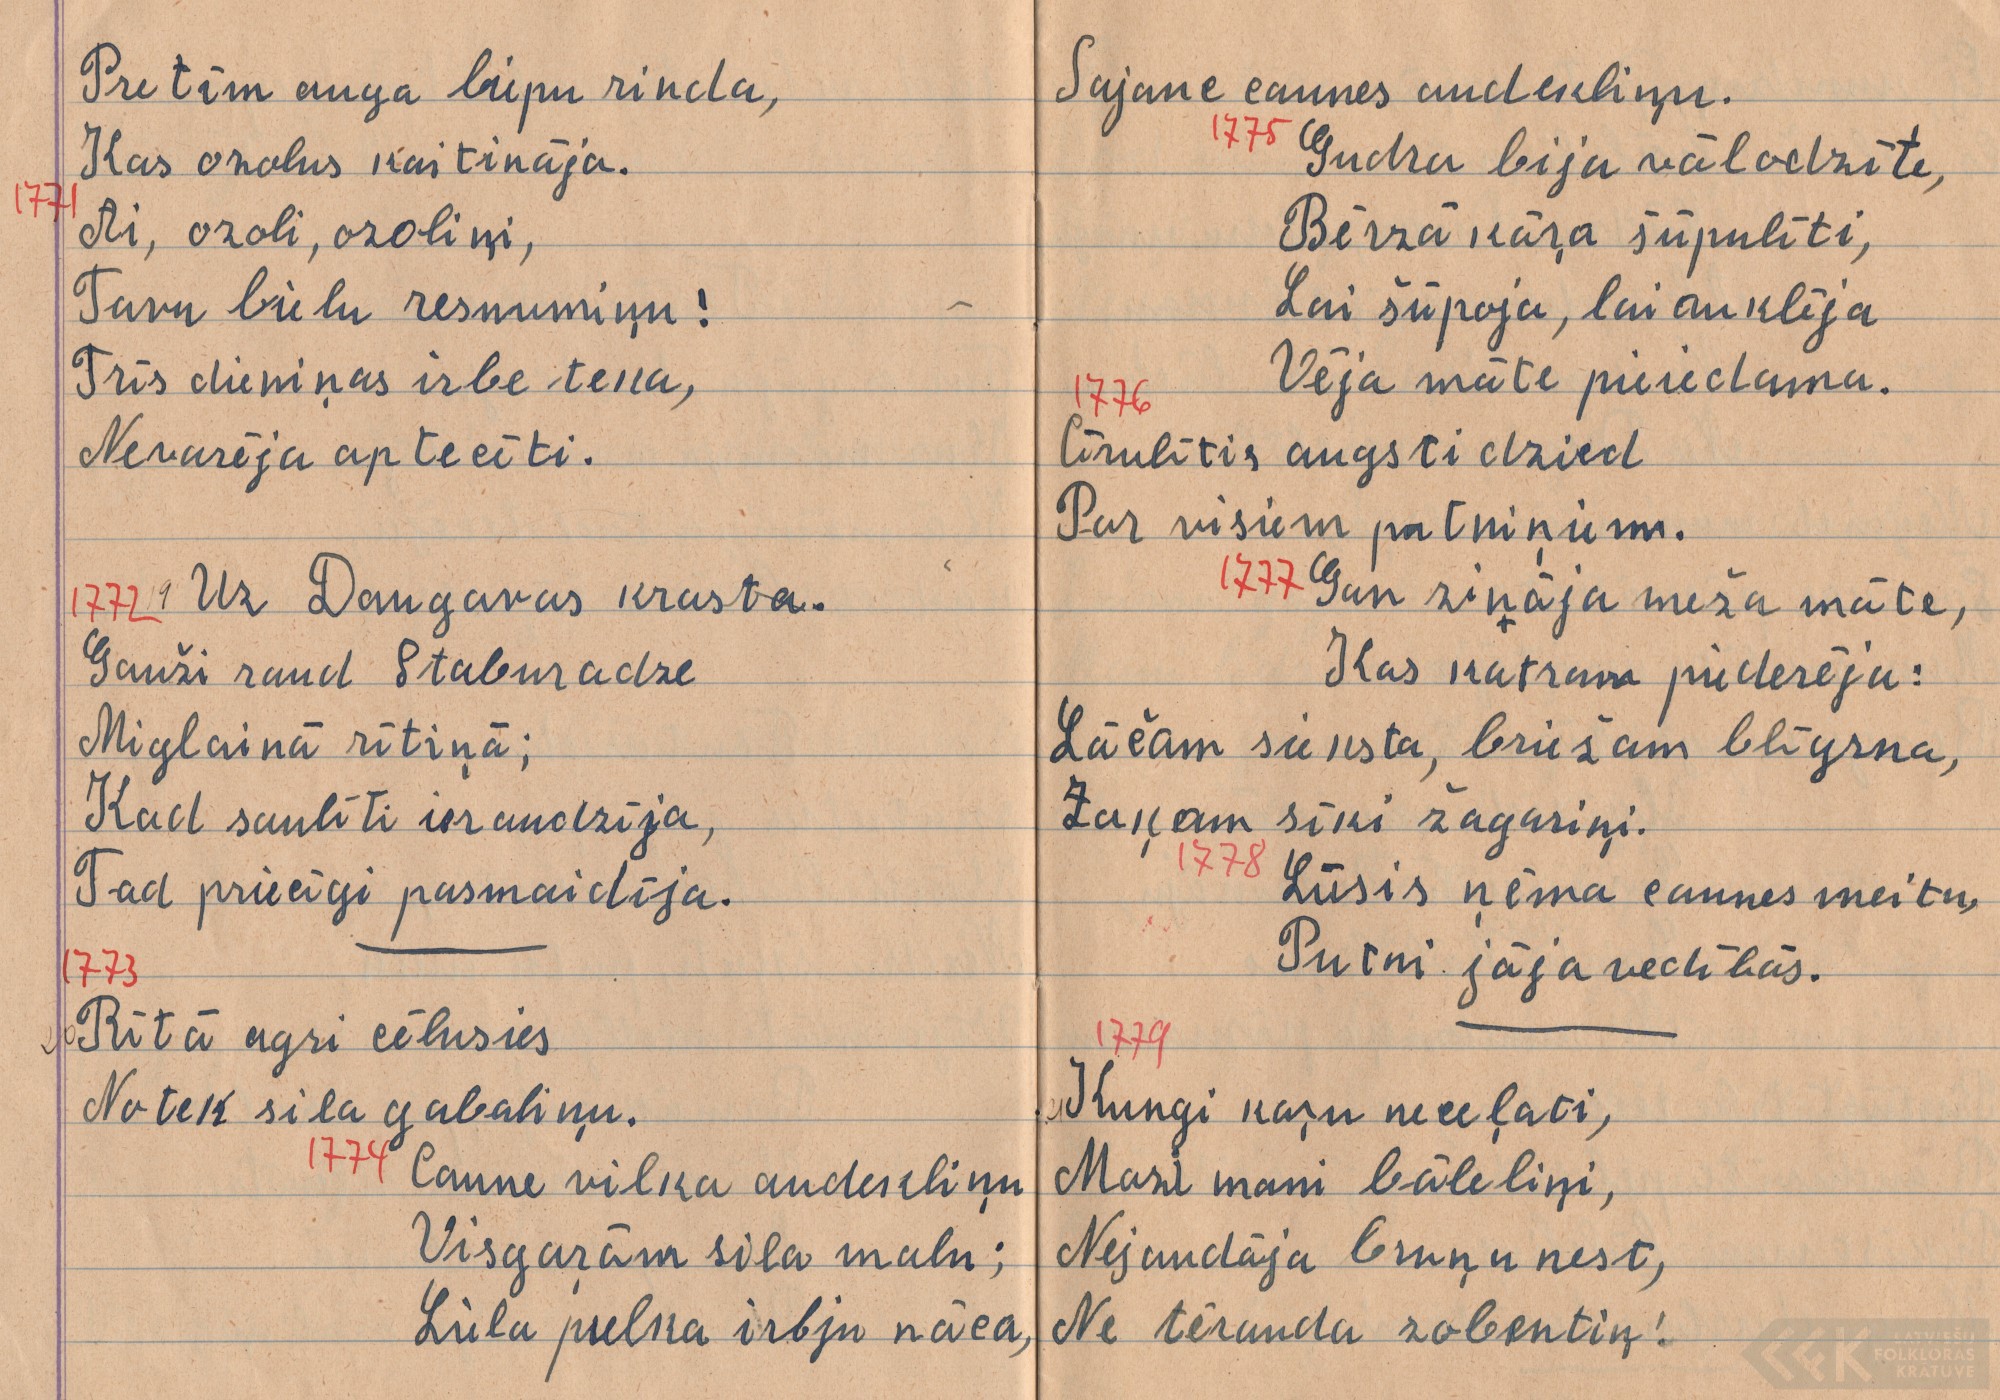 Pretīm auga liepu rinda,
Kas ozolus kaitināja.
1771
Ai, ozoli, ozoliņi,
Tavu lielu resnumiņu!
Trīs dieniņas irbe teka,
Nevarēja aptecēti.
1772 9 Uz Daugavas krasta.
Gauži raud Staburadze
Miglainā rītiņā;
Kad saulīti ieraudzīja,
Tad priecīgi pasmaidīja.
1773
Rītā agri cēlusies
Notek sila gabaliņu.
1774 Caune vilka audekliņu
Visgaŗām sila malu;
Liela pulka irbju nāca,
Sajauc caunes audekliņu.
1775 Gudra bija vālodzīte,
Bērzā kāŗa šūpulīti,
Lai šūpoja, lai auklēja
Vēja māte pieiedama.
1776
Cīrulītis augsti dzied
Par visiem putniņiem.
1777 Gan ziņāja meža māte,
Kas katram piederēja:
Lāčam sieksta, briežam līgzna,
Zaķam sīki žagariņi.
1778 Lūsis ņēma caunes meitu,
Putni jāja vedībās.
1779
Kungi kaŗu neceļati,
Mazi mani bāleliņi,
Nejaudāja bruņu nest,
Ne tērauda zobentiņ!
LATVIEŠU
FOLKLORAS
KRĀTUVE